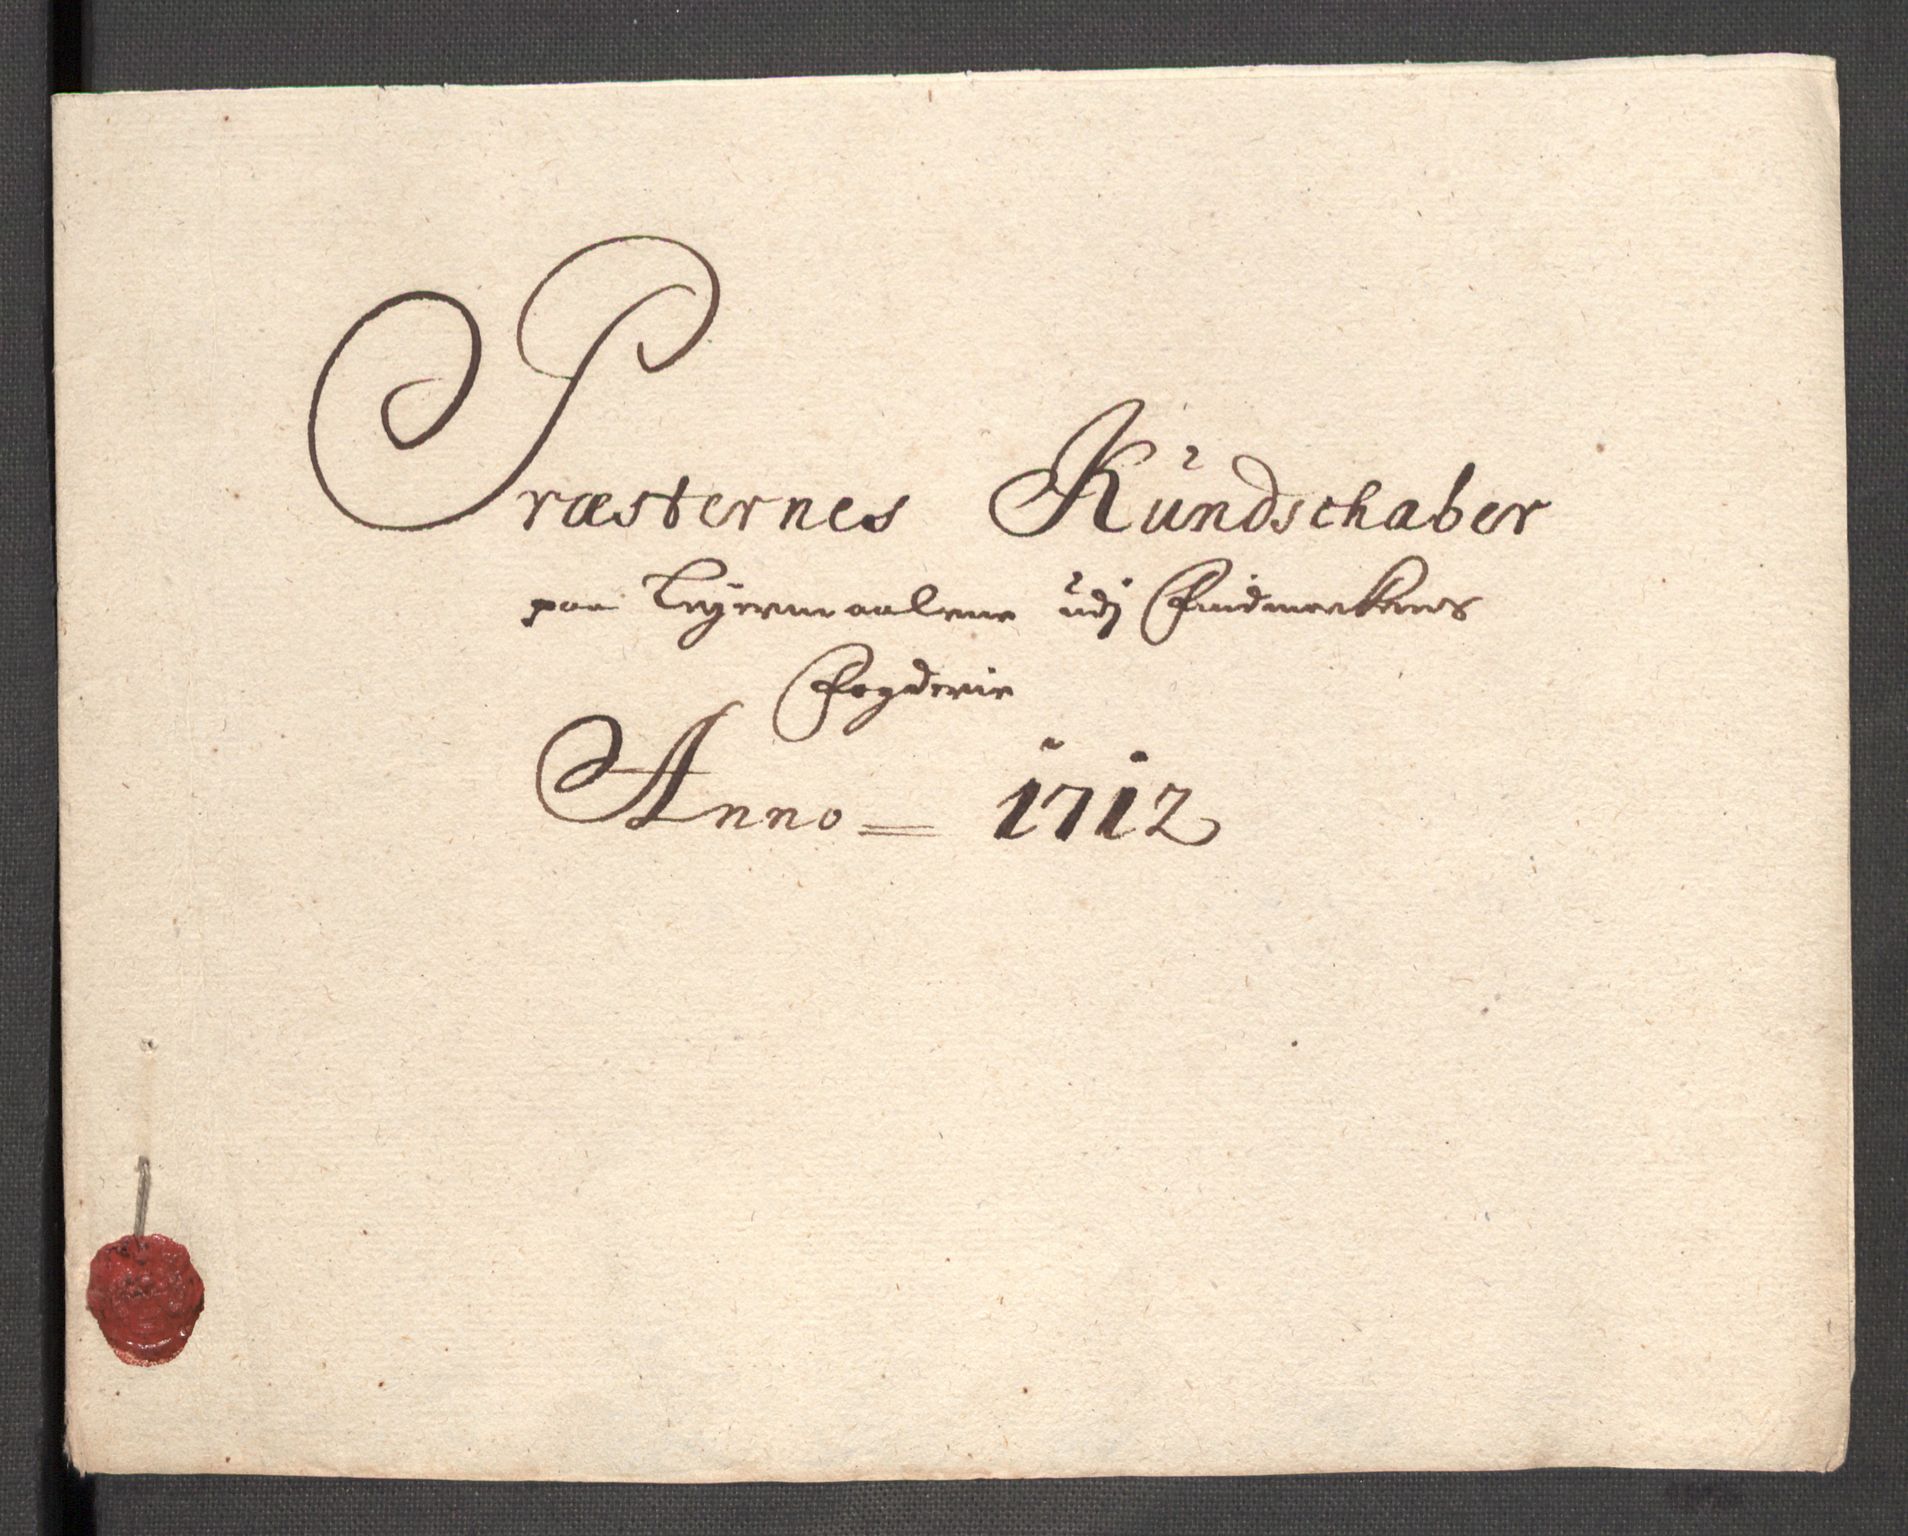 Præsternes Kündschaber
paa Leyermaalene udj Findmarkens
Fogderie
Anno = 1712